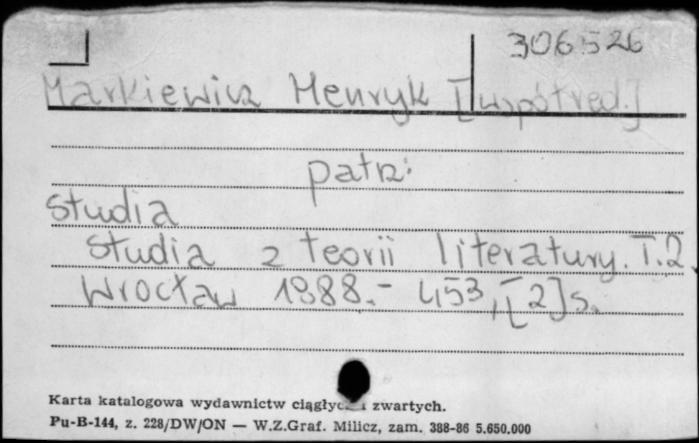 306526
Markiewicz Henryk [współred.]
patrz:
studia
studia z teorii literatury. T.2.
Wrocław 1988.- 453,[2]s.
Karta katalogowa wydawnictw zwartych.
Pu-B-144, z. 228/DW/ON — W.Z.Graf. Milicz, zam. 388-86 5.650.000